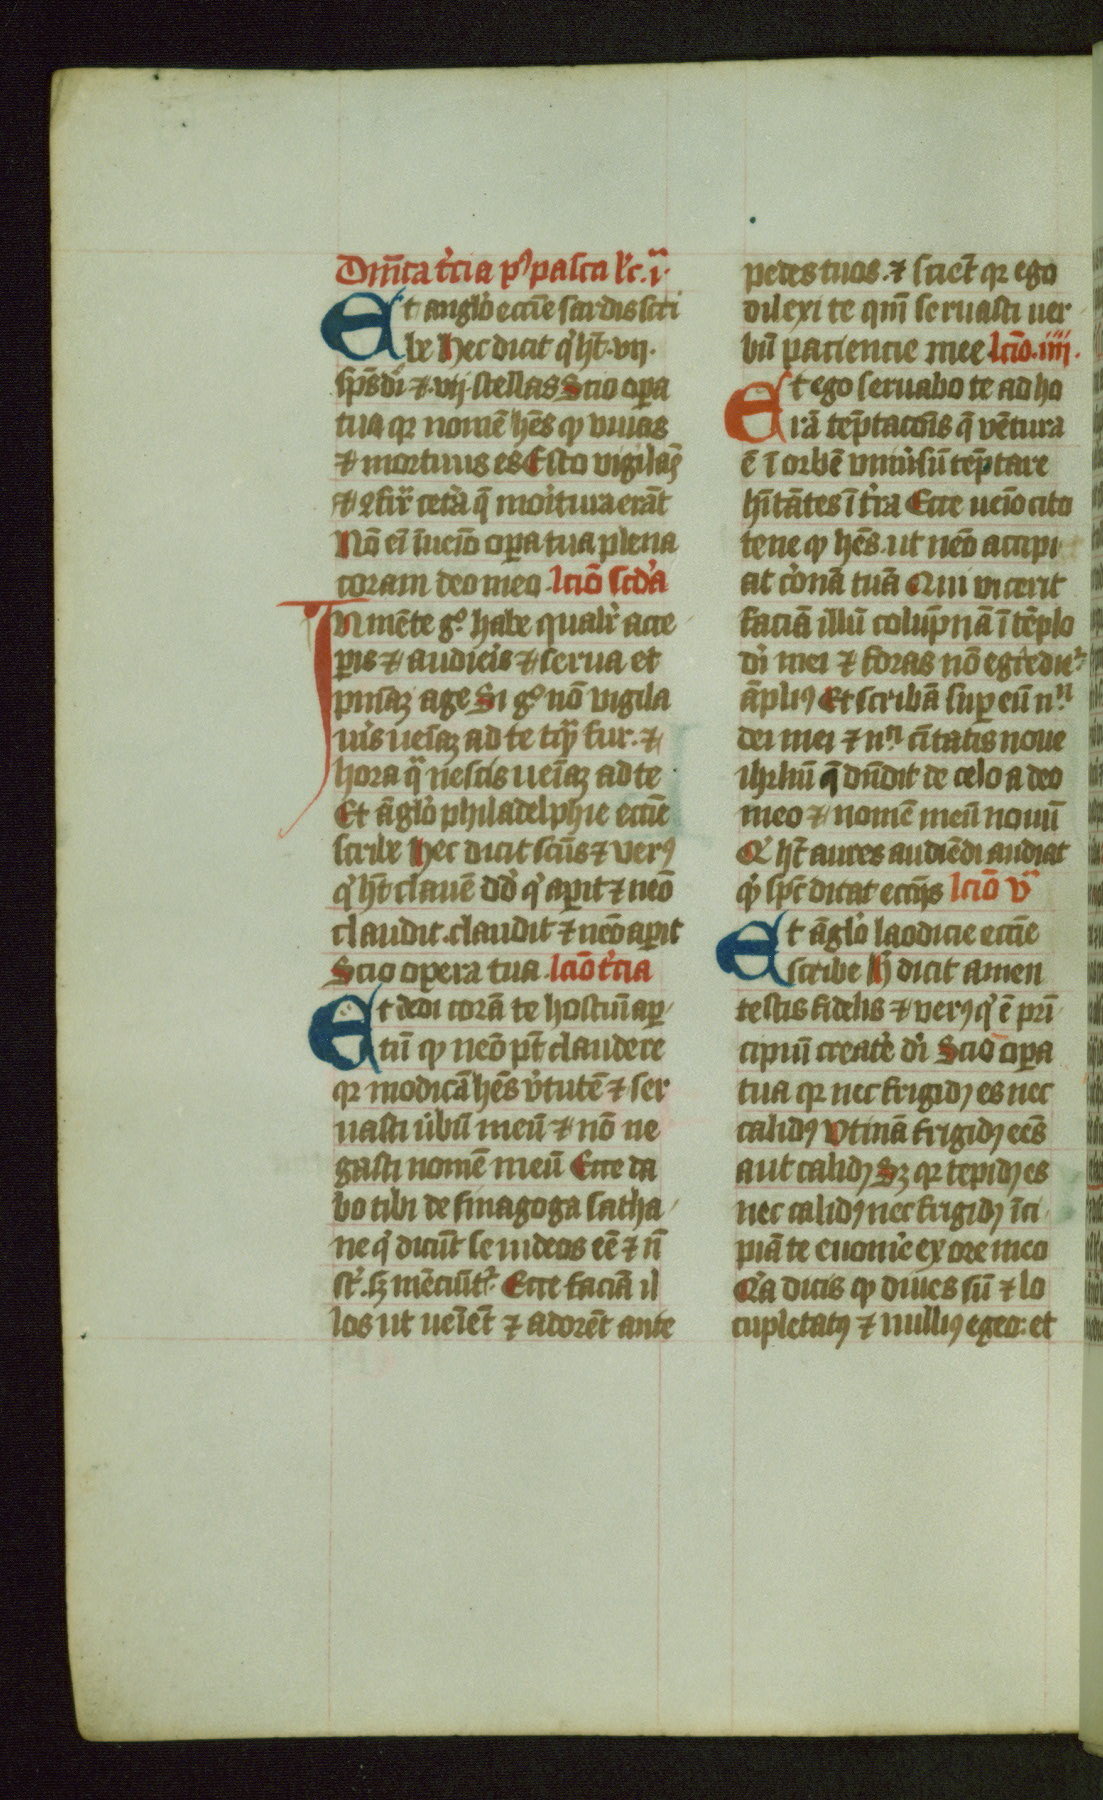 Dnīca t̄cia pꝰ pasca lc̄. ı̄.
Et anglo̍ eccīe sardis scri
be Hec dicit q̍ ht̄ .vij.
sp̄s dī ⁊ .vij. stellas Scio oꝑa
tua qꝛ nomē hēs ꝙ viuas
⁊ mortuus es Esto vigilās
⁊ ꝯfir̄ cetᵃ q̄ moritura erāt
Nō eī īueīo oꝑa tua plena
coram deo meo. lcīo scd̓a
In mēte gͦ habe qualr̄ acce
pis ⁊ audieis ⁊ serua et
pnīaꝫ age Si gͦ nō vigila
uīs ueīaꝫ ad te tqᵃ̄ fur. ⁊
hora qᵃ nescis ueīaꝫ ad te
Et āglo̍ philadelphie eccīe
scribe Hec dicit scūs ⁊ verꝰ
q̍ ht̄ clauē dd̓ q̍ aꝑit ⁊ neō
claudit. claudit ⁊ neō aꝑit
Scio opera tua lcīo t̄cia
Et dedi corā te hostiū aꝑ
tū ꝙ neō pt̄ claudere
qꝛ modicā hēs v̓tutē ⁊ ser
uasti ūbū meū ⁊ nō ne
gasti nomē meū Ecce da
bo tibi de sinagoga satha
ne q̍ dicūt se iudeos eē ⁊ n̄
st̄. sꝫ mēciūtᷣ. Ecce faciā il
los ut ueīet̄ ⁊ adorēt ante
pedes tuos. ⁊ sciet̄ qꝛ ego
dilexi te qm̄ seruasti uer
bū paciencie mee lcīo. iiij.
Et ego seruabo te ad ho
rā tēptacōis q̄ vētura
ē ī orbē vniūsū tēptare
hītātes ī t̓ra Ecce ueīo cito
tene ꝙ hēs. ut neō accipi
at co̓nā tuā Qui vicerit
faciā illū colūpnā ī tēplo
dī mei ⁊ foras nō egredieᷣ
āpliꝰ Et scribā suꝑ eū nⁿ
dei mei ⁊ nⁿ cītatis noue
ihrlm̄ q̄ dn̄dit de celo a deo
meo ⁊ nomē meū nouū
Q̍ ht̄ aures audiēdi audiat
q̍ sp̄c dicat eccījs lcīo v̄
Et āglo̍ laodicie eccīe
scribe H̄ dicit amen
testis fidelis ⁊ verꝰ q̍ ē prī
cipiū creat̓e dī Scio oꝑa
tua qꝛ nec frigidꝰ es nec
calidꝰ Vtinā frigidꝰ eēs
aut calidꝰ Sꝫ qꝛ tepidꝰ es
nec calidꝰ nec frigidꝰ īci
piā te euome̓ ex ore meo
Q̍a dicis ꝙ diues sū ⁊ lo
cupletatꝰ ⁊ nulliꝰ egeo: et